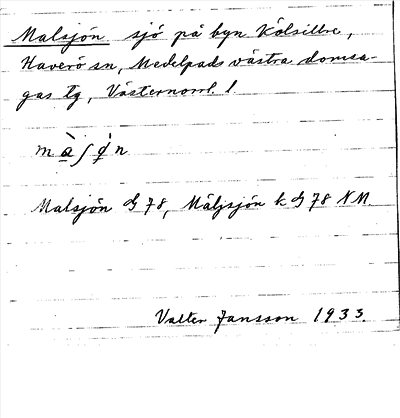 Malsjön sjö på byn Kölsillre,
Haverö sn, Medelpads västra domsa-
gas tg, Västernorrl. l.
Malsjön G 78, Mäljsjön k G 78 NM
Valter Jansson 1933.